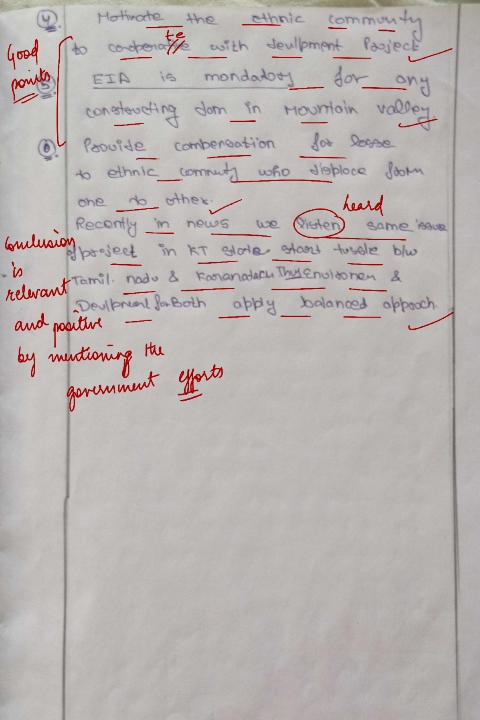 ④ Motivate the ethnic community
to cooperatte with deullpment Project
Good
points
⑤ EIA is mandatory for any
constructing dam in mountain valley
⑥ Provide compensation for losse
to ethnic commuty who displace from
one to other.
heard
Recently in news we listen same issue
of project in KT state start tussle b/w
Tamil. nadu & Karanataka Thus Environmen &
Devlpment for Both apply balanced approch.
Conclusion
is
relevant
and positive
by mentioning the
government efforts